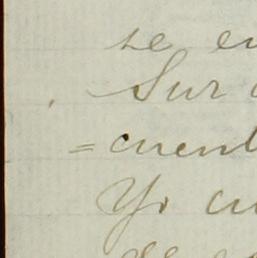 se en
Sur
=cuent
Yo cu